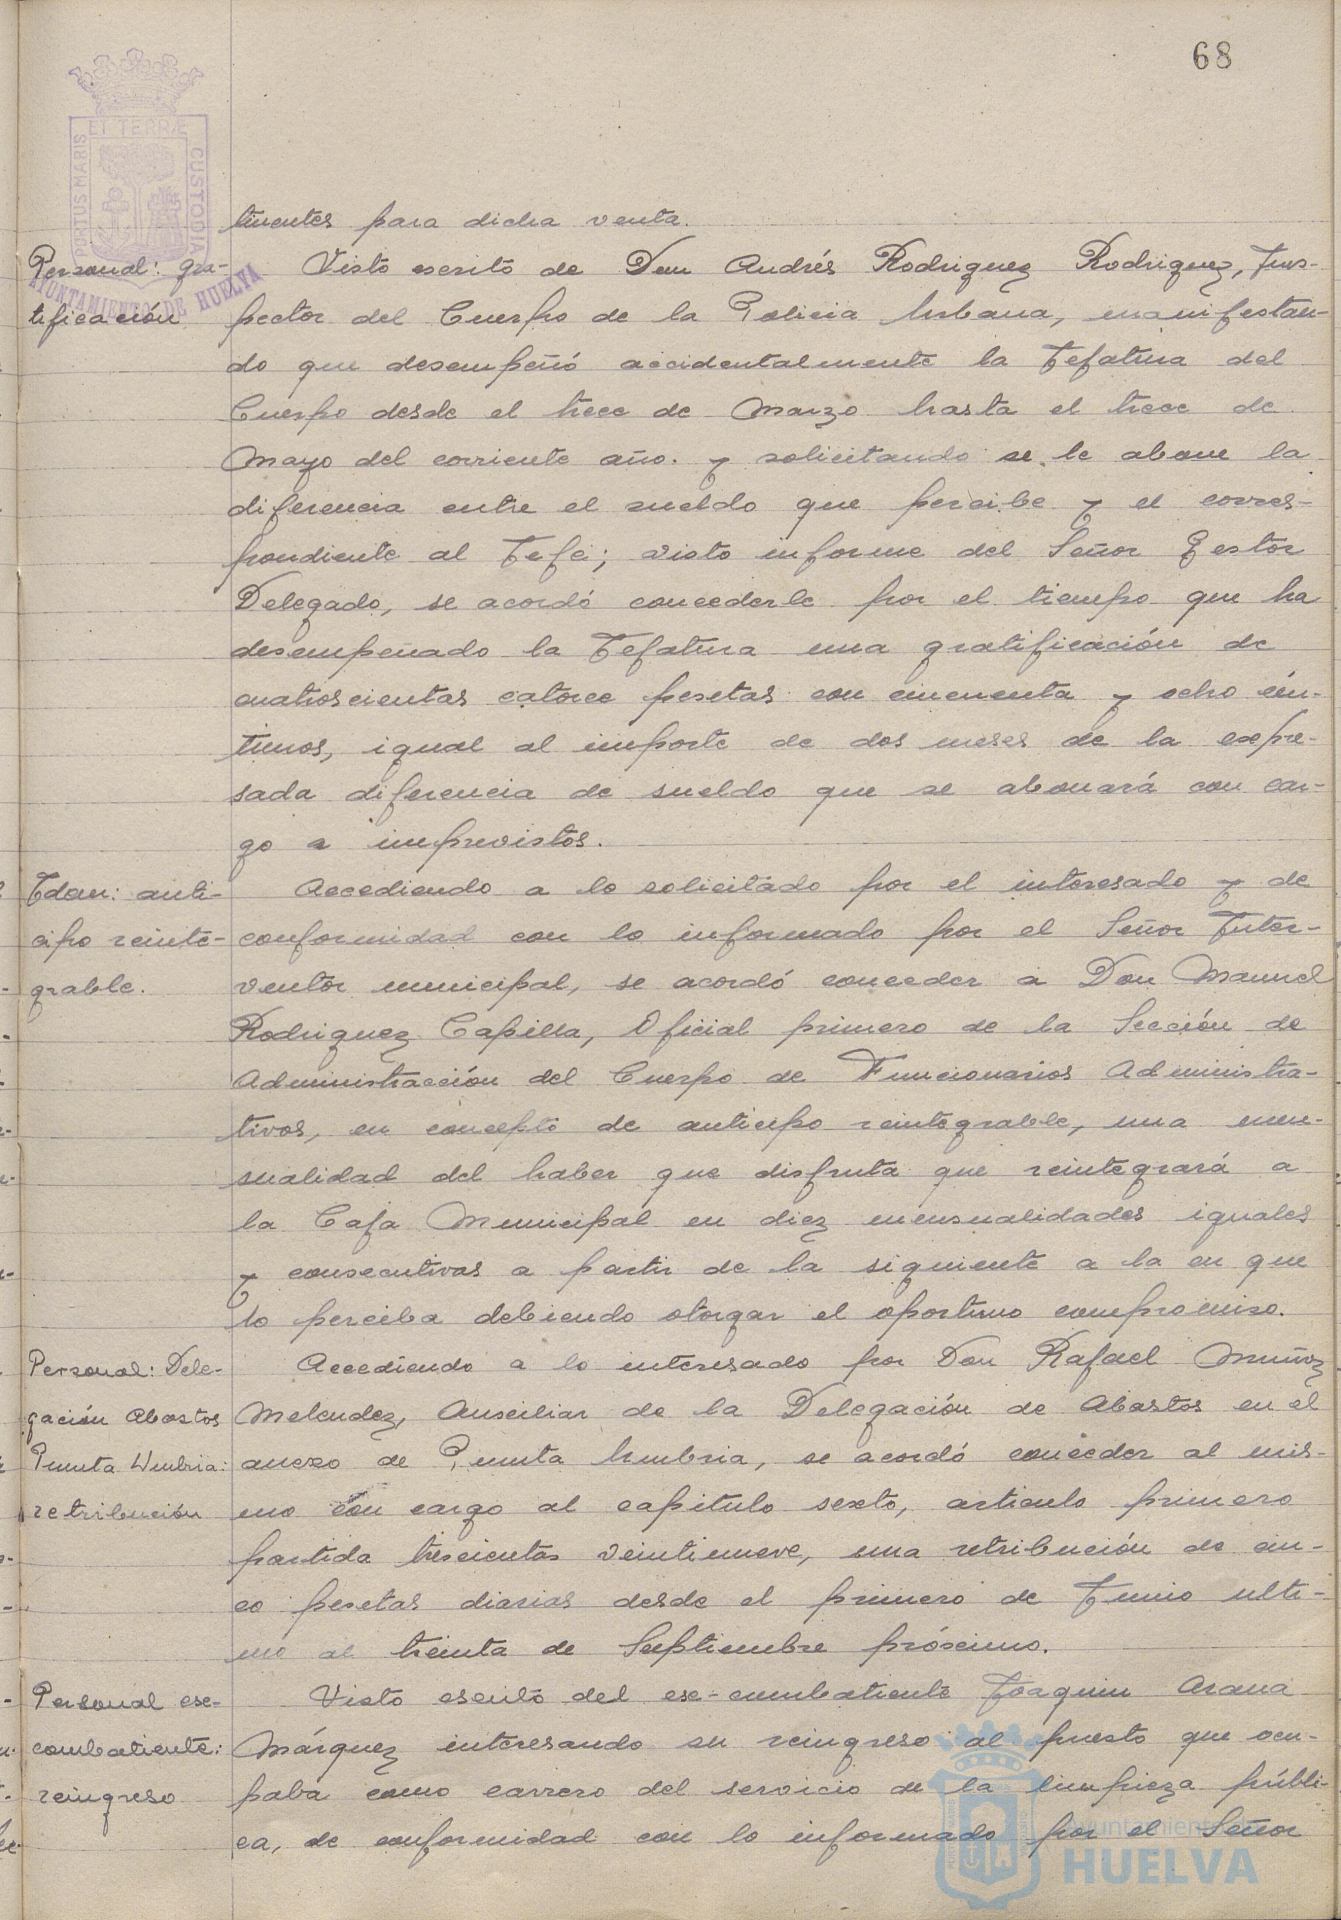 68
PORTUS MARIS ET TERRÆ CUSTODIA
AYUNTAMIENTO DE HUELVA
tinentes para dicha venta.
Personal: gra-
tificación
Visto escrito de Don Andrés Rodriguez Rodriguez, Ins-
pector del Cuerpo de la Policia Urbana, manifestan-
do que desempeñó accidentalmente la Jefatura del
Cuerpo desde el trece de Marzo hasta el trece de
Mayo del corriente año. y solicitando se le abone la
diferencia entre el sueldo que percibe y el corres-
pondiente al Jefe; visto informe del Señor Gestor
Delegado, se acordó concederle por el tiempo que ha
desempeñado la Jefatura una gratificación de
cuatroscientas catorce pesetas con cincuenta y ocho cén-
timos, igual al importe de dos meses de la expre-
sada diferencia de sueldo que se abonará con car-
go a imprevistos.
Idem: anti-
cipo reinte-
grable.
Accediendo a lo solicitado por el interesado y de
conformidad con lo informado por el Señor Inter-
ventor municipal, se acordó conceder a Don Manuel
Rodriguez Capilla, Oficial primero de la Sección de
Administracción del Cuerpo de Funcionarios Administra-
tivos, en concepto de anticipo reintegrable, una men-
sualidad del haber que disfruta que reintegrará a
la Caja Municipal en diez mensualidades iguales
y consecutivas a partir de la siguiente a la en que
lo perciba debiendo otorgar el oportuno compromiso.
Personal: Dele-
gación Abastos
Punta Umbria:
retribución
Accediendo a lo interesado por Don Rafael Muñoz
Melendez, Auxiliar de la Delegación de Abastos en el
anexo de Punta Umbria, se acordó conceder al mis-
mo con cargo al capitulo sexto, articulo primero
partida trescientas veintinueve, una retribución de cin-
co pesetas diarias desde el primero de Junio ulti-
mo al treinta de Septiembre próximo.
Personal exc-
combatiente:
reingreso
Visto escrito del exc-combatiente Joaquin Arana
Márquez interesando su reingreso al puesto que ocu-
paba como carrero del servicio de la limpieza públi-
ca, de conformidad con lo informado por el Señor
Ayuntamiento
HUELVA